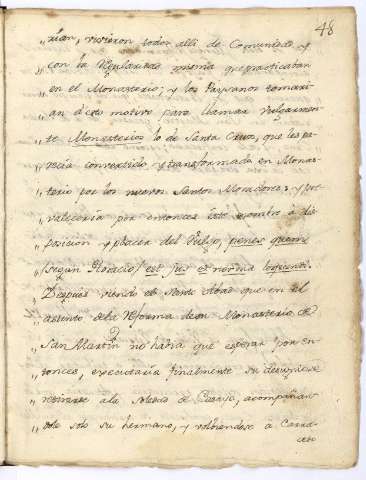 48
„ rian, vivieron todos alli de Comunidad, y
„ con la Regularidad misma que practicaban
„ en el Monasterio; y los Paysanos tomari-
„ an de este motivo para llamar vulgarmen-
„ te Monasterios lo de Santa Cruz, que les pa-
„ recia convertido, y transformado en Monas-
„ terio por los nuevos Santos Moradores: y pre-
„ valeceria por entonces este nombre à dis-
„ posicion y placer del Vulgo, penes quem
„ (segun Horacio) est jus et norma loquendi.
„ Despues viendo el Santo Abad que en el
„ assunto de la Reforma de su Monasterio de
„ San Martin no habia que esperar por en-
„ tonces, executaria finalmente su
„ retirarse a la Iglesia de acompañan-
„ dole solo su hermano, y volviendose a Carra-
cedo